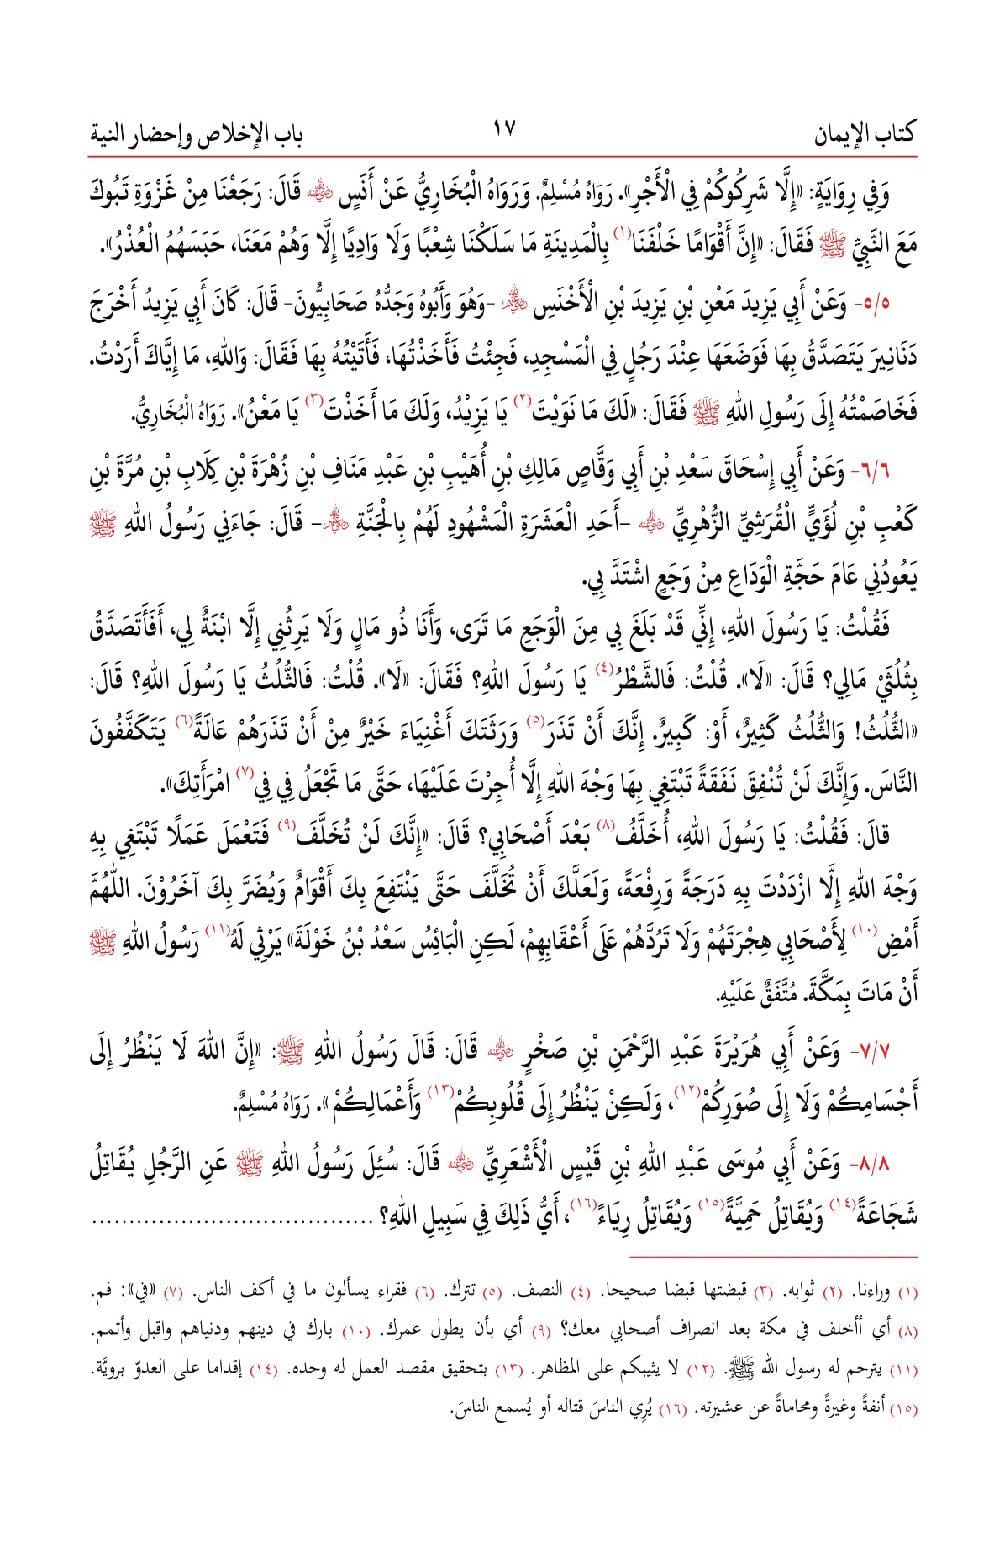 كتاب الإيمان ١٧ باب الإخلاص وإحضار النية
وَفِي رِوَايَةٍ: «إِلَّا شَرِكُوكُمْ فِي الْأَجْرِ». رَوَاهُ مُسْلِمٌ. وَرَوَاهُ الْبُخَارِيُّ عَنْ أَنَسٍ ﵁ قَالَ: رَجَعْنَا مِنْ غَزْوَةِ تَبُوكَ
مَعَ النَّبِيِّ ﷺ فَقَالَ: «إِنَّ أَقْوَامًا خَلْفَنَا(١) بِالْمَدِينَةِ مَا سَلَكْنَا شِعْبًا وَلَا وَادِيًا إِلَّا وَهُمْ مَعَنَا، حَبَسَهُمُ الْعُذْرُ».
٥/٥- وَعَنْ أَبِي يَزِيدَ مَعْنِ بْنِ يَزِيدَ بْنِ الْأَخْنَسِ ﵃ -وَهُوَ وَأَبُوهُ وَجَدُّهُ صَحَابِيُّونَ- قَالَ: كَانَ أَبِي يَزِيدُ أَخْرَجَ
دَنَانِيرَ يَتَصَدَّقُ بِهَا فَوَضَعَهَا عِنْدَ رَجُلٍ فِي الْمَسْجِدِ، فَجِئْتُ فَأَخَذْتُهَا، فَأَتَيْتُهُ بِهَا فَقَالَ: وَاللهِ، مَا إِيَّاكَ أَرَدْتُ.
فَخَاصَمْتُهُ إِلَى رَسُولِ اللهِ ﷺ فَقَالَ: «لَكَ مَا نَوَيْتَ(٢) يَا يَزِيْدُ، وَلَكَ مَا أَخَذْتَ(٣) يَا مَعْنُ». رَوَاهُ الْبُخَارِيُّ.
٦/٦- وَعَنْ أَبِي إِسْحَاقَ سَعْدِ بْنِ أَبِي وَقَّاصٍ مَالِكِ بْنِ أُهَيْبِ بْنِ عَبْدِ مَنَافِ بْنِ زُهْرَةَ بْنِ كِلَابِ بْنِ مُرَّةَ بْنِ
كَعْبِ بْنِ لُؤَيٍّ الْقُرَشِيِّ الزُّهْرِيِّ ﵁ -أَحَدِ الْعَشَرَةِ الْمَشْهُودِ لَهُمْ بِالْجَنَّةِ ﵃- قَالَ: جَاءَنِي رَسُولُ اللهِ ﷺ
يَعُودُنِي عَامَ حَجَّةِ الْوَدَاعِ مِنْ وَجَعٍ اشْتَدَّ بِي.
فَقُلْتُ: يَا رَسُولَ اللهِ، إِنِّي قَدْ بَلَغَ بِي مِنَ الْوَجَعِ مَا تَرَى، وَأَنَا ذُو مَالٍ وَلَا يَرِثُنِي إِلَّا ابْنَةٌ لِي، أَفَأَتَصَدَّقُ
بِثُلُثَيْ مَالِي؟ قَالَ: «لَا». قُلْتُ: فَالشَّطْرُ(٤) يَا رَسُولَ اللهِ؟ فَقَالَ: «لَا». قُلْتُ: فَالثُّلُثُ يَا رَسُولَ اللهِ؟ قَالَ:
«الثُّلُثُ! وَالثُّلُثُ كَثِيرٌ، أَوْ: كَبِيرٌ. إِنَّكَ أَنْ تَذَرَ(٥) وَرَثَتَكَ أَغْنِيَاءَ خَيْرٌ مِنْ أَنْ تَذَرَهُمْ عَالَةً(٦) يَتَكَفَّفُونَ
النَّاسَ. وَإِنَّكَ لَنْ تُنْفِقَ نَفَقَةً تَبْتَغِي بِهَا وَجْهَ اللهِ إِلَّا أُجِرْتَ عَلَيْهَا، حَتَّى مَا تَجْعَلُ فِي فِي(٧) امْرَأَتِكَ».
قالَ: فَقُلْتُ: يَا رَسُولَ اللهِ، أُخَلَّفُ(٨) بَعْدَ أَصْحَابِي؟ قَالَ: «إِنَّكَ لَنْ تُخَلَّفَ(٩) فَتَعْمَلَ عَمَلًا تَبْتَغِي بِهِ
وَجْهَ اللهِ إِلَّا ازْدَدْتَ بِهِ دَرَجَةً وَرِفْعَةً، وَلَعَلَّكَ أَنْ تُخَلَّفَ حَتَّى يَنْتَفِعَ بِكَ أَقْوَامٌ وَيُضَرَّ بِكَ آخَرُوْنَ. اللَّهُمَّ
أَمْضِ(١٠) لِأَصْحَابِي هِجْرَتَهُمْ وَلَا تَرُدَّهُمْ عَلَى أَعْقَابِهِمْ، لَكِنِ الْبَائِسُ سَعْدُ بْنُ خَوْلَةَ» يَرْثِي لَهُ(١١) رَسُولُ اللهِ ﷺ
أَنْ مَاتَ بِمَكَّةَ. مُتَّفَقٌ عَلَيْهِ.
٧/٧- وَعَنْ أَبِي هُرَيْرَةَ عَبْدِ الرَّحْمَنِ بْنِ صَخْرٍ ﵁ قَالَ: قَالَ رَسُولُ اللهِ ﷺ: «إِنَّ اللهَ لَا يَنْظُرُ إِلَى
أَجْسَامِكُمْ وَلَا إِلَى صُوَرِكُمْ(١٢)، وَلَكِنْ يَنْظُرُ إِلَى قُلُوبِكُمْ(١٣) وَأَعْمَالِكُمْ». رَوَاهُ مُسْلِمٌ.
٨/٨- وَعَنْ أَبِي مُوسَى عَبْدِ اللهِ بْنِ قَيْسٍ الْأَشْعَرِيِّ ﵁ قَالَ: سُئِلَ رَسُولُ اللهِ ﷺ عَنِ الرَّجُلِ يُقَاتِلُ
شَجَاعَةً(١٤) وَيُقَاتِلُ حَمِيَّةً(١٥) وَيُقَاتِلُ رِيَاءً(١٦)، أَيُّ ذَلِكَ فِي سَبِيلِ اللهِ؟ ......................................
(١) وراءنا. (٢) ثوابه. (٣) قبضتها قبضا صحيحا. (٤) النصف. (٥) تترك. (٦) فقراء يسألون ما في أكف الناس. (٧) «في»: فم.
(٨) أي أأخلف في مكة بعد انصراف أصحابي معك؟ (٩) أي بأن يطول عمرك. (١٠) بارك في دينهم ودنياهم واقبل وأتمم.
(١١) يترحم له رسول الله ﷺ. (١٢) لا يثيبكم على المظاهر. (١٣) بتحقيق مقصد العمل له وحده. (١٤) إقداما على العدوّ برويَّة.
(١٥) أنفةً وغيرةً ومحاماةً عن عشيرته. (١٦) يُرِي الناسَ قتاله أو يُسمع الناسَ.